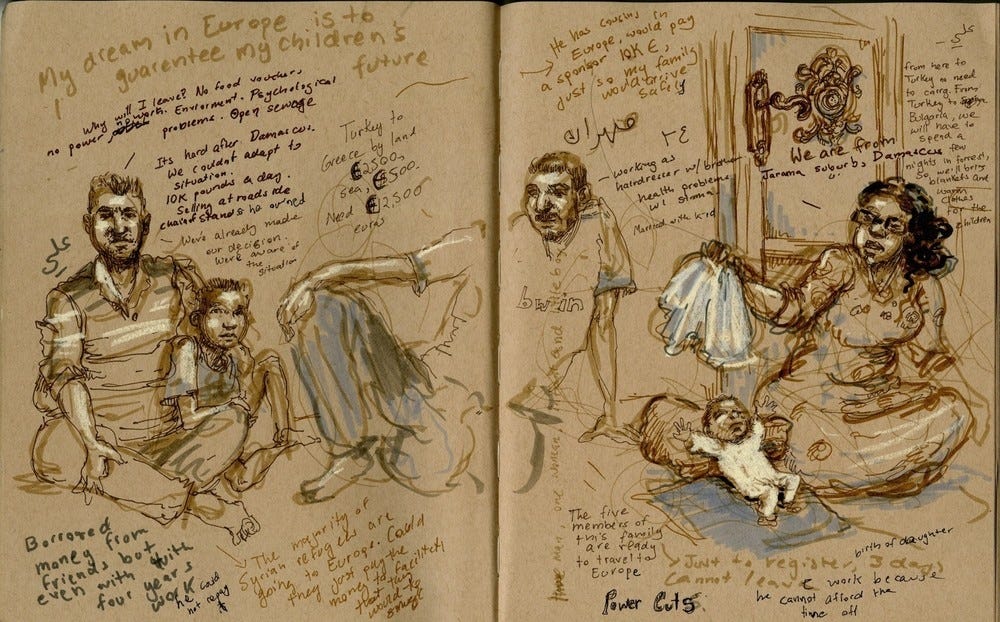 My dream in Europe is to
guarentee my children's
future
Why will I leave? No food vouchers,
no power, no work. Enviorment. Psychological
problems. Open sewage
Its hard after Damascus.
We couldnt adapt to
situation.
10K pounds a day.
Selling at roadside
stands he owned
We've already made
our decision.
Were aware of
the situation
Turkey to
Greece by land
€2500,
sea, €1500.
Need €12,500
euro
Borrored
money from
friends but
even with
four years
work
he could
not repay
it
The majority of
Syrian refugees are
going to Europe. Could
they just pay the
money to facilitety
that they
would to
smugg
He has cousins in
Europe, would pay
sponsor 10K €,
just so my family
would arrive
safely
٢٤
working as
hairdresser w/ brother
health problems
w/ stomach
Married with kid
We are from
Jarama suburb, Damascus
from here to
Turkey no need
to carry. From
Turkey to
Bulgaria, we
will have to
spend a
few
nights in forrest,
so we'll bring
blankets and
warm
clothes
for the
children
The five
members of
this family
are ready
to travel to
Europe
Power Cuts
Just to register, 3 days
cannot leave work because
he cannot afford the
time off
birth of daughter